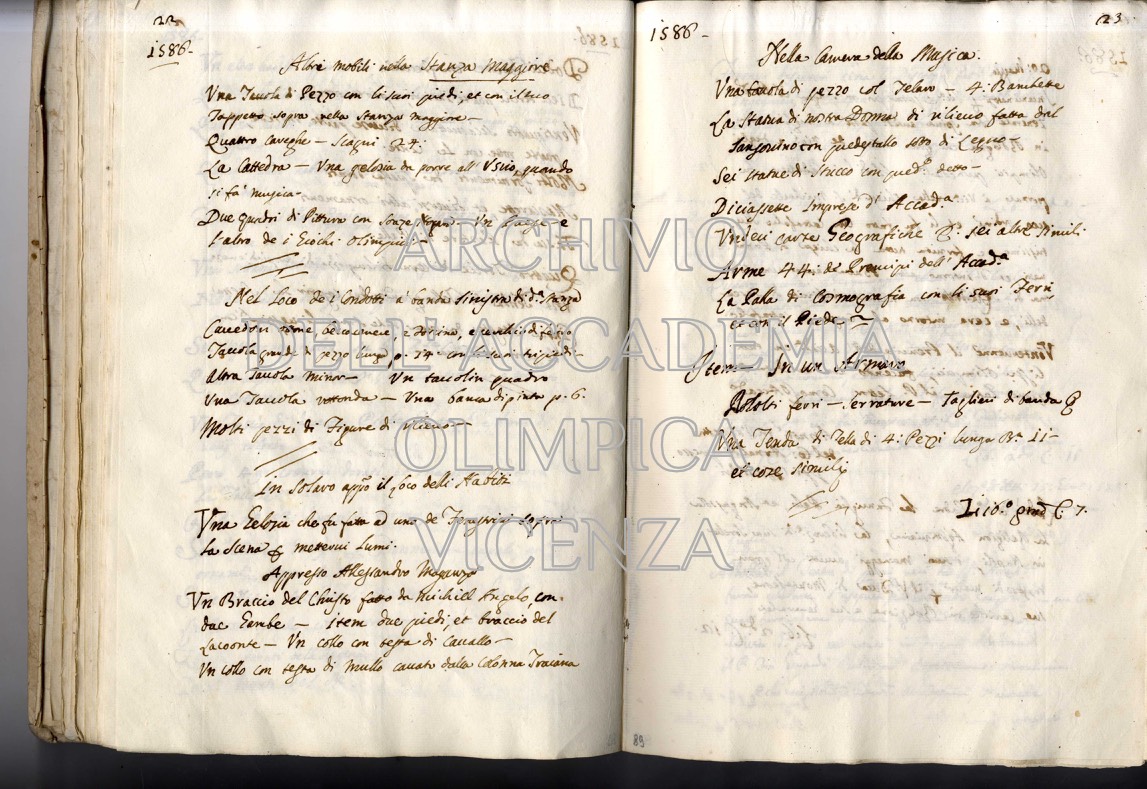 22
1586.
Altri mobili nella Stanza Maggiore
Una Tavola di Pezzo con li suoi piedi, et con il suo
Tappetto sopra nella stanza maggiore -
Quattro careghe - Scagni n. 4.
La Cattedra - Una gelosia da porre all'Uscio, quando
si fa musica -
Due quadri di Pittura con Un e
l'altro de i Giochi Olimpici -
Nel loco de i Condotti à banda sinistra di d.a stanza
Tavola grande di pezzo lunga p. 14 - con li suoi trepiedi -
Altra Tavola minor - Un taccolin quadro
Una Tavola rottonda - Una banca dipinta p. 6.
Molti pezzi di Figure di rilievo -
In Solaro app.o il loco delli Habiti
Una Gelosia che fu fatta ad uno de
la Scena p metterui Lumi.
Appresso Allessandro Maganza
Un Braccio del Christo fatto da Michiel Angelo, con
due Gambe - Item due piedi, et braccio del
Lacoonte - Un collo con testa di Cavallo -
Un collo con testa di Mullo cavata dalla Colonna Traiana
23
1586 -
Nella Camera della Musica.
Una tavola di pezzo col Telaro - 4. Banchette
La Statua di nostra Donna di rilievo fatta dal
Sansovino con piedestallo sotto di Legno -
Sei statue di Stucco con pied.o detto -
Diciassette Imprese d'Accad.a
Undeci carte Geografiche sei altre simili
Arme 44. de Principi dell'Accad.a
La Palla di Cosmografia con li suoi Ferri
et con il Piede
Item - In un Armaro
Molti ferri - serrature - Taglieri di banda
Una Tenda di Tela di 4. Pezzi lunga B. 11 -
et cose simili
Li 10.
89
ARCHIVIO
DELL'ACCADEMIA
OLIMPICA
VICENZA